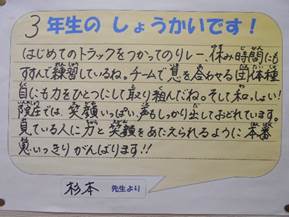 3年生の しょうかいです!
はじめてのトラックをつかってのリレー。休み時間にも
すすんで練習しているね。チームで息を合わせる団体種
目にも力をひとつにして取り組んだね。そして和っしょい!
では、笑顔いっぱい、声もしっかり出しておどれています。
見ている人に力と笑顔をあたえられるように本番
思いっきりがんばります!!
杉本 先生より